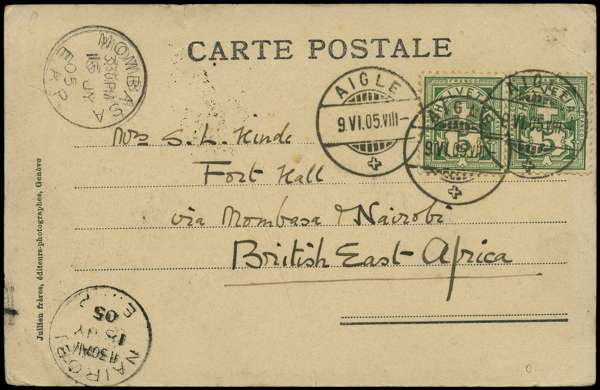 CARTE POSTALE
MOMBASA
330PM
15 JY
05
E A P
AIGLE
9.VI.05.VIII-
AIGLE
9.VI.05.VIII-
AIGLE
VI.05.VIII-
HELVETIA
HELVETIA
5
Mrs S. L. Hinde
Fort Hall
via Mombasa & Nairobi
British East-Africa
Jullien frères, éditeurs-photographes, Genève
NAIROBI
1130AM
JY
05